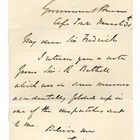 Government House
Cape Town March 30
My dear Sir Frederick
I return you a note
from Sir R. Bethell
which was in some manner
accidentally placed up in
one of the despatches sent
to me
Believe me